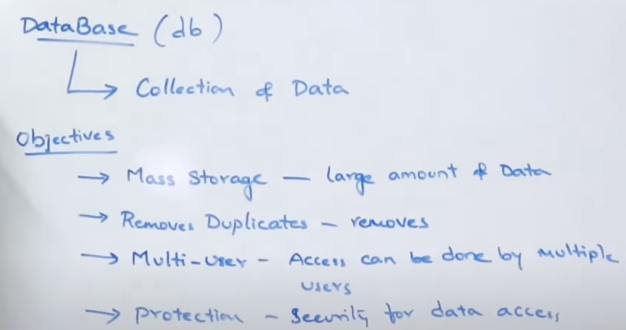 DataBase (db)
Collection of Data
Objectives
→ Mass Storage — large amount of Data
→ Removes Duplicates - removes
→ Multi-user - Access can be done by multiple
users
→ Protection - Security for data access